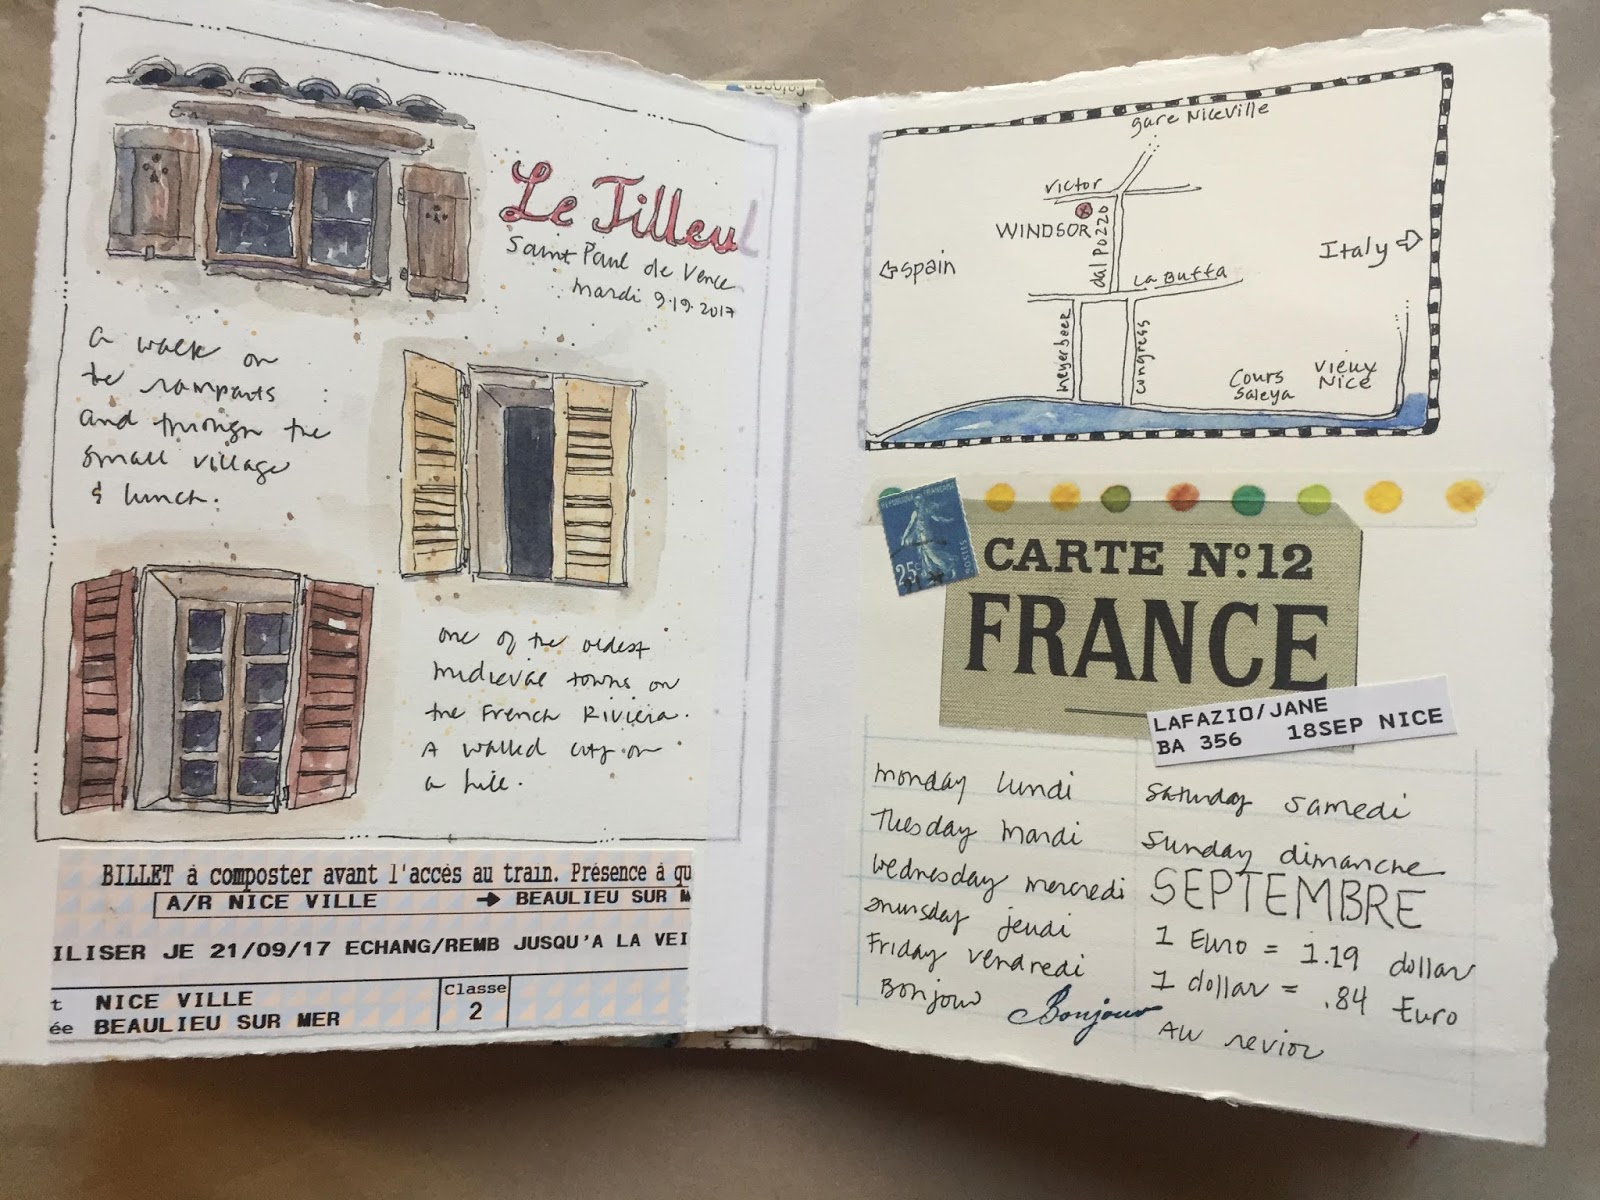 Le Tilleul
Saint Paul de Vence
mardi 9.19.2017
a walk on
the ramparts
and through the
small village
& lunch.
one of the oldest
medieval towns on
the French Riviera.
A walled city on
a hill.
BILLET à composter avant l'accès au train. Présence à qu
A/R NICE VILLE → BEAULIEU SUR M
ILISER JE 21/09/17 ECHANG/REMB JUSQU'A LA VEI
t NICE VILLE
ée BEAULIEU SUR MER
Classe
2
gare Niceville
Victor
WINDSOR
dal Pozzo
Italy ⇨
⇦ Spain
La Buffa
meyerbeer
congress
Cours
Saleya
Vieux
Nice
REPUBLIQUE FRANÇAISE
25c
POSTES
CARTE Nº.12
FRANCE
LAFAZIO/JANE
BA 356 18SEP NICE
monday lundi
Tuesday mardi
wednesday mercredi
Thursday jeudi
Friday vendredi
Bonjour Bonjour
Saturday samedi
Sunday dimanche
SEPTEMBRE
1 Euro = 1.19 dollar
1 dollar = .84 Euro
Au revior